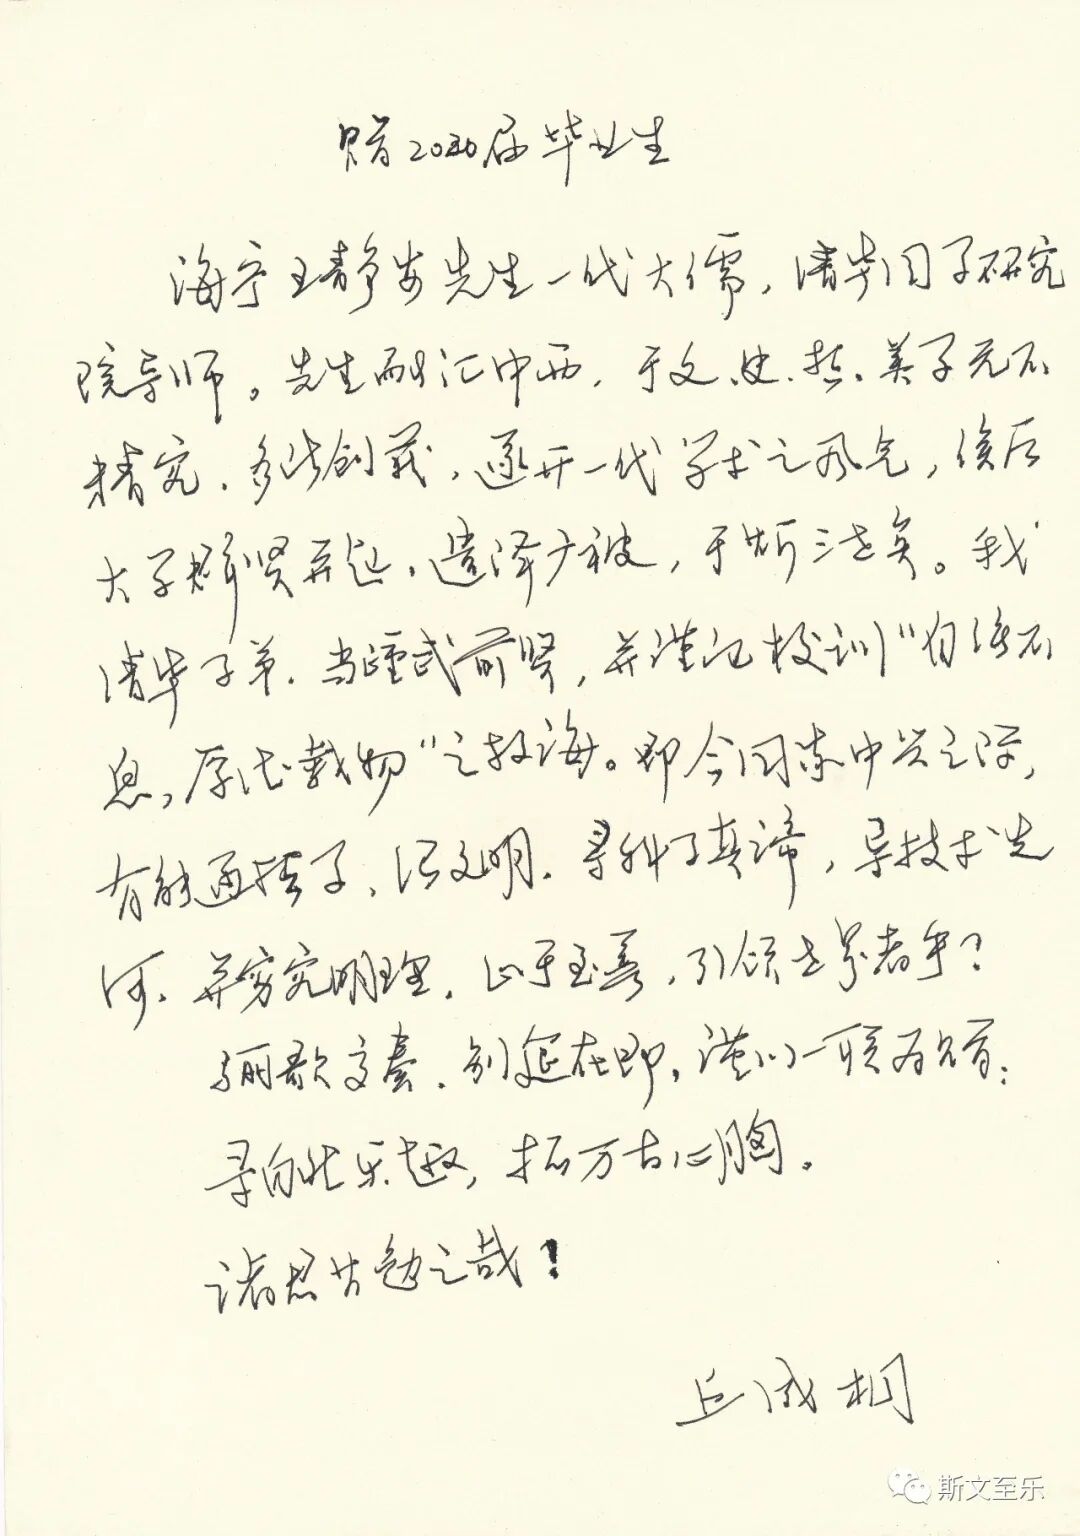 赠2020届毕业生
海宁王静安先生一代大儒，清华国学研究
院导师。先生融汇中西，于文、史、哲、美学无不
精究，多此创获，遂开一代学术之风气，俟后
大学群贤并起，遗泽广被，于斯三世矣。我
清华子弟，当踵武前贤，并谨记校训“自强不
息，厚德载物”之教诲。即今国家中兴之际，
有能通哲学、续文明、寻科学真谛，导技术先
河，并穷究明理，止于至善，引领世界者乎？
骊歌高奏，别筵在即，谨以一联为赠：
寻向此乐趣，拓万古心胸。
诸君共勉之哉！
丘成桐
斯文至乐